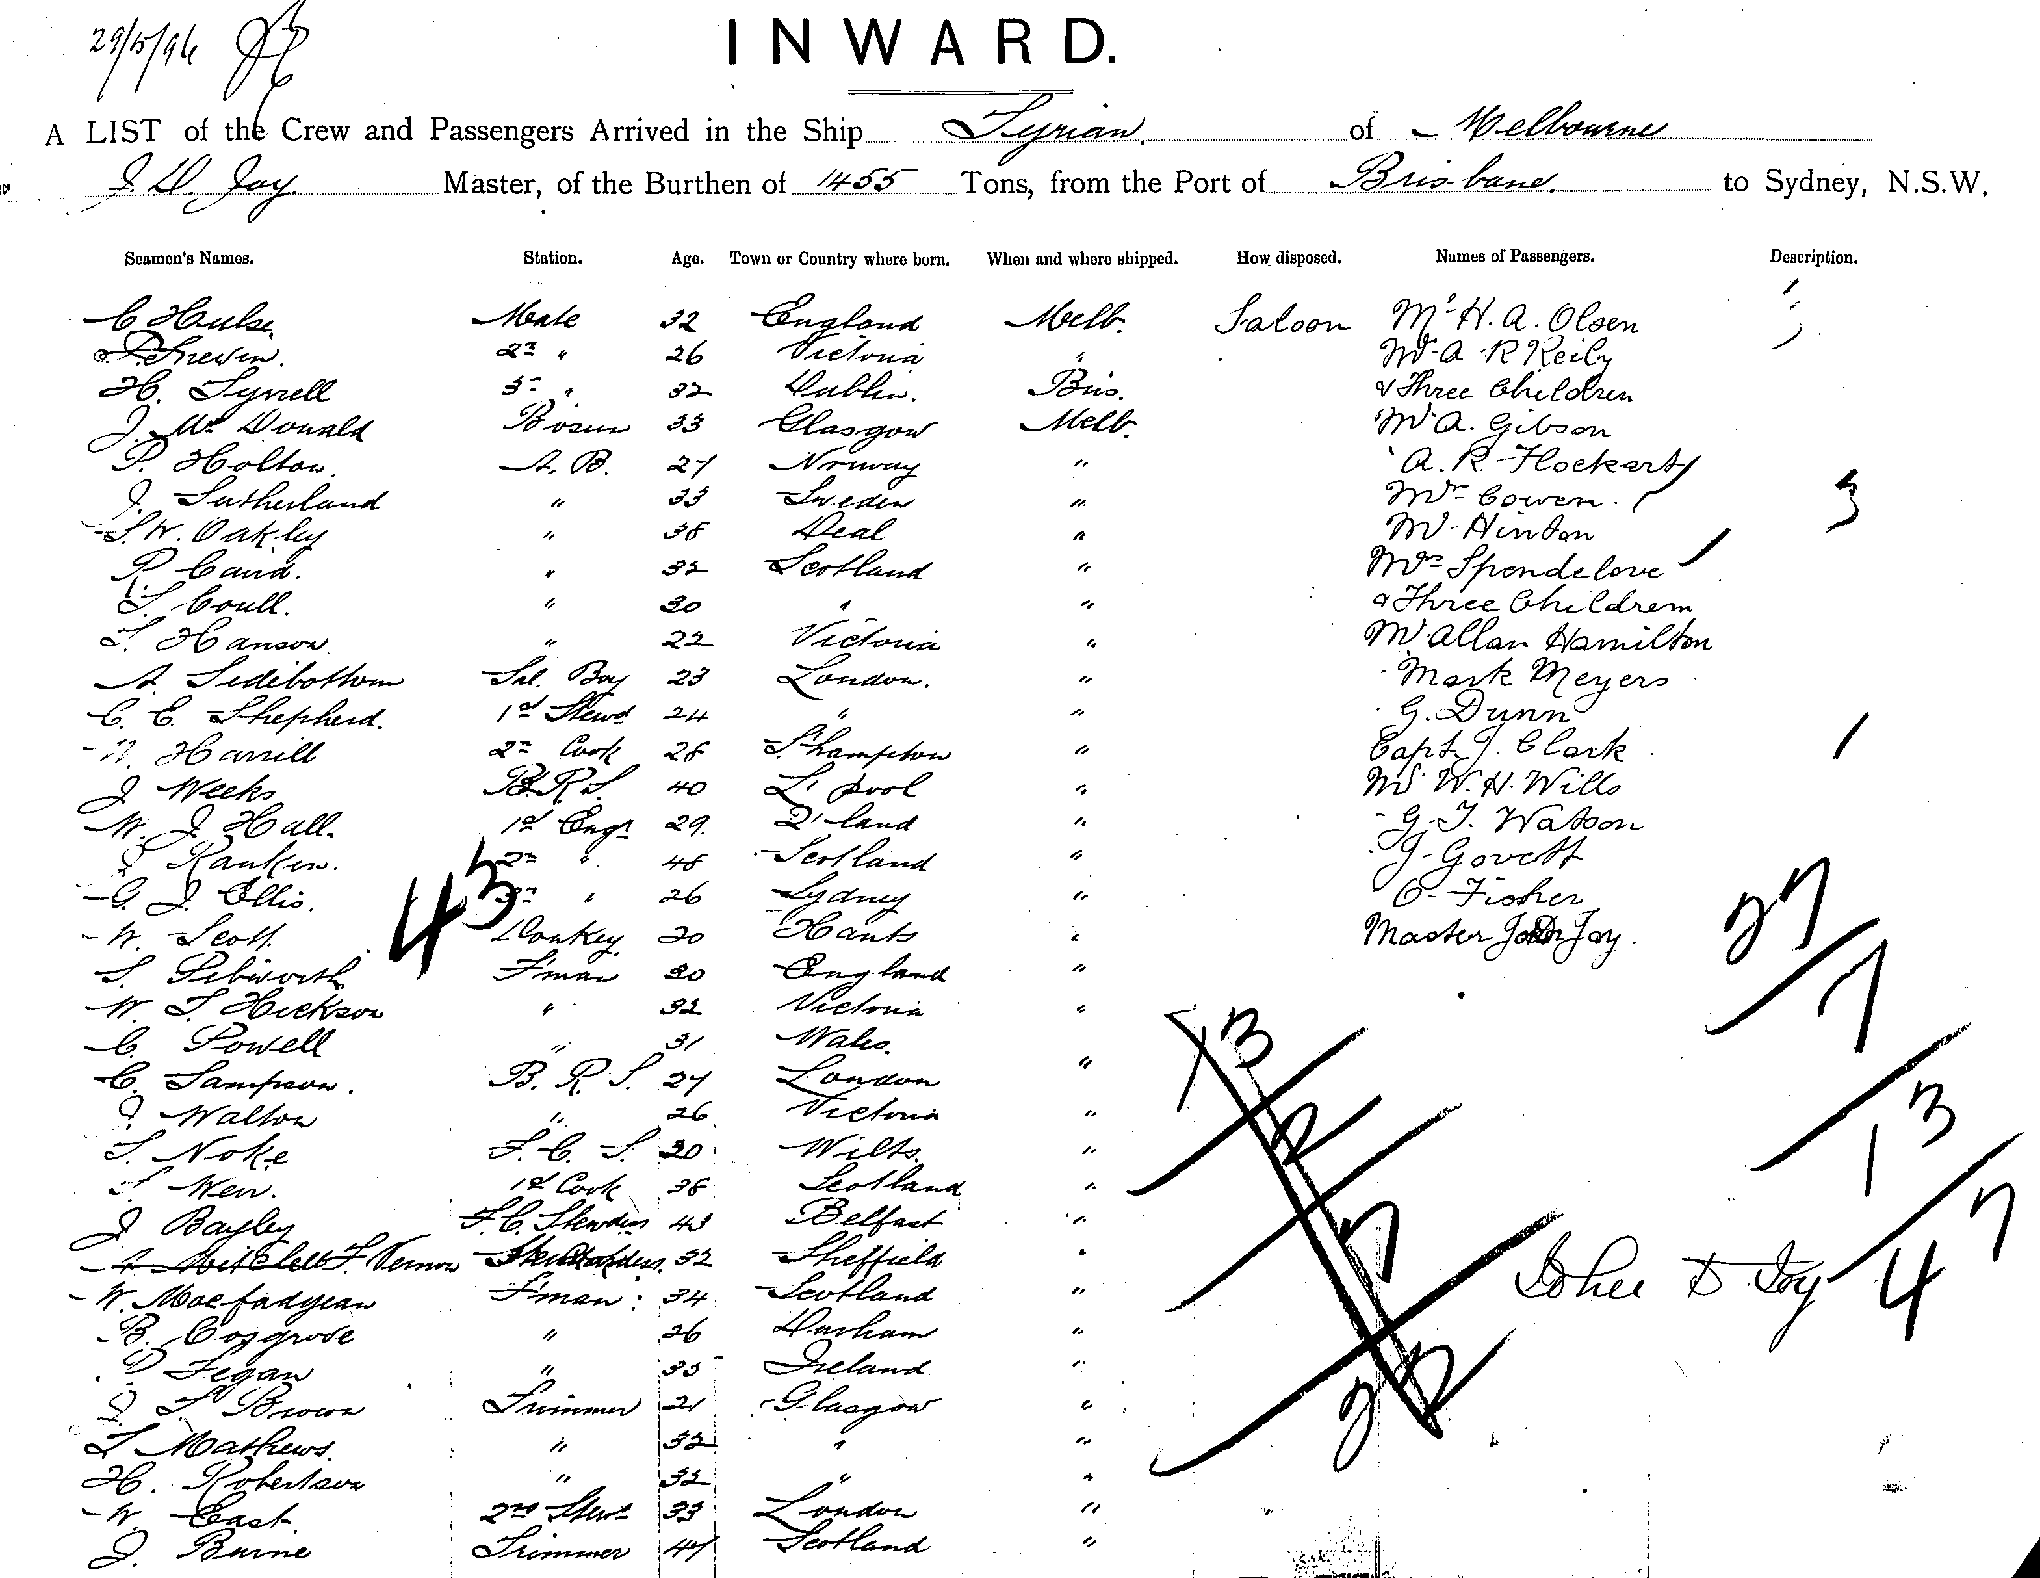 29/5/96
INWARD.
A LIST of the Crew and Passengers Arrived in the Ship Tyrian of Melbourne
J. D. Joy Master, of the Burthen of 1455 Tons, from the Port of Brisbane to Sydney, N.S.W.
Seamen's Names. Station. Age. Town or Country where born. When and where shipped. How disposed. Names of Passengers. Description.
C Hulse Mate 32 England Melb. Saloon Mr H. A. Olsen
Trewin. 2nd " 26 Victoria " Mr A R Keily
H. Tyrrell 3rd " 32 Dublin. Bris. & Three Children
J. Mc Donald Bosun 33 Glasgow Melb. Mr A. Gibson
P. Holton. A. B. 27 Norway " A. R. Flockart
J. Sutherland " 33 Sweden " Mr Cowen. 3
S. W. Oakley " 38 Deal " Mr Hinton
R Caird. " 32 Scotland " Mrs Spendelove
T. Coull. " 30 " " & Three Children
T. Hanson " 22 Victoria " Mr Allan Hamilton
A. Sidebothom Sal. Boy 23 London. " Mark Meyers
C. E. Shepherd. 1st Stewd 24 " " G. Dunn
Harrill 2nd Cook 28 S'hampton " Capt J. Clark 1
J Weeks B. R. S. 40 L'pool " Mr W. H. Wills
W. J. Hall. 1st Engr 29 Q'land " G. T. Watson
Rankin. 2nd " 48 Scotland " J. Govett
G. J. Ellis. " 26 Sydney " C. Fisher
43
W. Scott Donkey 30 Hants " Master Joy. 27
S. F'man 30 England "
W. T. Hickson " 32 Victoria " 7
C. Powell " 31 Wales. 13
C. Sampson. B. R. S. 27 London "
J Walton " 26 Victoria " 2 13
T. Noke F. C. S. 30 Wilts. "
Weir. 1st Cook 38 Scotland "
J Bayley F. C. Stewdess 43 Belfast " 7
A. Mitchell F. Vernon 32 Sheffield " John D. Joy 47
W. Macfadyean F'man 34 Scotland "
B. Cosgrove " 26 Durham "
P Fegan " 35 Ireland " 22
Brown Trimmer 21 Glasgow "
T Mathews. " 32 " "
H. Robertson " 32 " "
W. East. 2nd Stewd 33 London "
J. Burne Trimmer 47 Scotland "